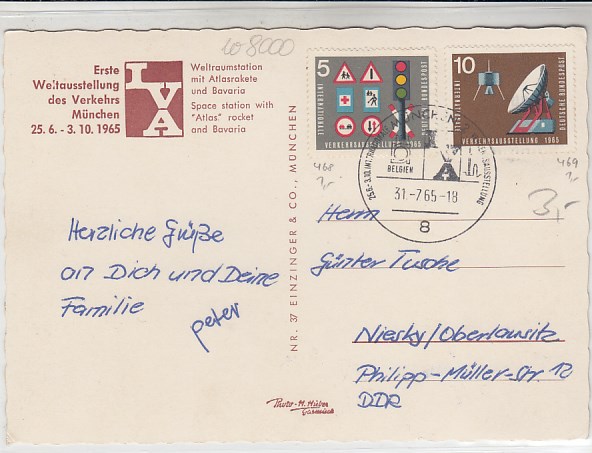 wo 8000
Erste
Weltausstellung
des Verkehrs
München
25. 6. - 3. 10. 1965
IVA
Weltraumstation
mit Atlasrakete
und Bavaria
Space station with
"Atlas" rocket
and Bavaria
5
DEUTSCHE BUNDESPOST
VERKEHRSAUSSTELLUNG 1965
10
DEUTSCHE BUNDESPOST
VERKEHRSAUSSTELLUNG 1965
MÜNCHEN
BELGIEN
31.-7.65-18
8
468
469
3,-
NR. 37 EINZINGER & CO., MÜNCHEN
Herzliche Grüße
an Dich und Deine
Familie
peter
Herrn
Günter Tusche
Niesky/Oberlausitz
Philipp-Müller-Str. 12
DDR
Photo-H. Huber
Garmisch